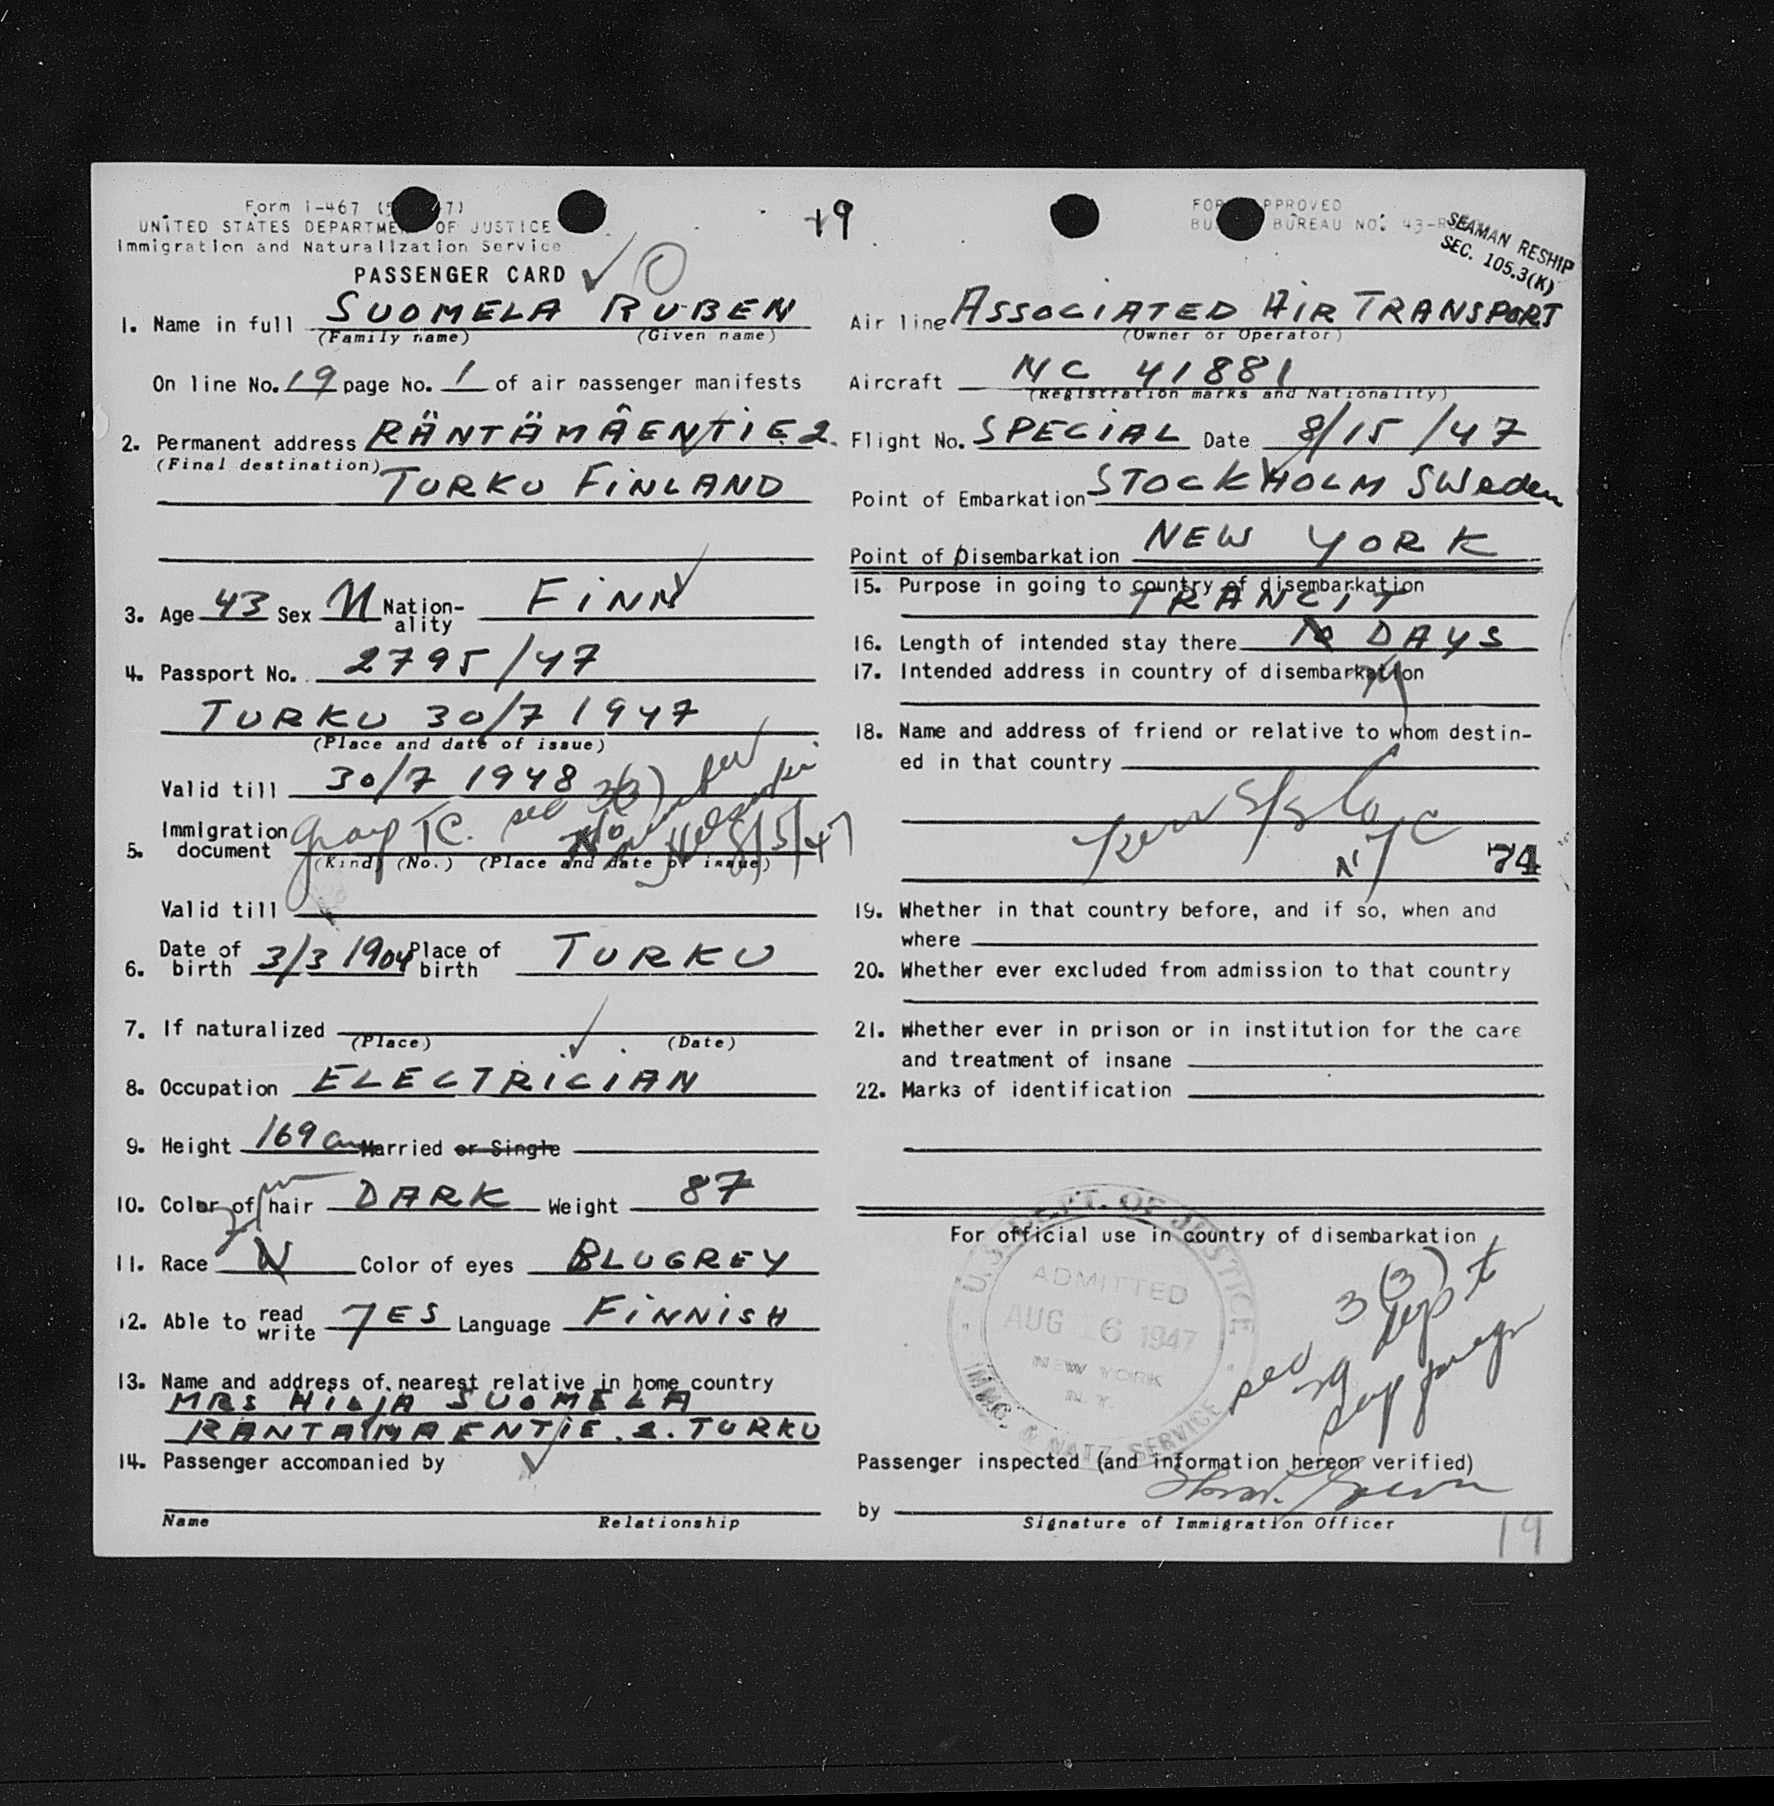 Form I-467 (5 47)
UNITED STATES DEPARTMENT OF JUSTICE
Immigration and Naturalization Service
PASSENGER CARD
19
FOR APPROVED
BU BUREAU NO. 43-R
SEAMAN RESHIP
SEC. 105.3(K)
1. Name in full SUOMELA RUBEN
(Family name) (Given name)
On line No. 19 page No. 1 of air passenger manifests
2. Permanent address RÄNTÄMÄENTIE 2.
(Final destination) TURKU FINLAND
3. Age 43 Sex M Nation-ality FINN
4. Passport No. 2795/47
TURKU 30/7 1947
(Place and date of issue)
Valid till 30/7 1948
5. Immigration document TC. sec 3(3) 8/5/47
(Kind) (No.) (Place and date of issue)
Valid till
6. Date of birth 3/3 1904 Place of birth TURKU
7. If naturalized
(Place) (Date)
8. Occupation ELECTRICIAN
9. Height 169 cm Married or Single
10. Color of hair DARK Weight 87
11. Race W Color of eyes BLUGREY
12. Able to read write YES Language FINNISH
13. Name and address of nearest relative in home country
MRS HILJA SUOMELA
RANTAMAENTIE. 2. TURKU
14. Passenger accompanied by
Name Relationship
Air line ASSOCIATED AIR TRANSPORT
(Owner or Operator)
Aircraft NC 41881
(Registration marks and Nationality)
Flight No. SPECIAL Date 8/15/47
Point of Embarkation STOCKHOLM SWeden
Point of Disembarkation NEW YORK
15. Purpose in going to country of disembarkation
TRANCIT
16. Length of intended stay there DAYS
17. Intended address in country of disembarkation
18. Name and address of friend or relative to whom destin-
ed in that country
NYC
74
19. Whether in that country before, and if so, when and
where
20. Whether ever excluded from admission to that country
21. Whether ever in prison or in institution for the care
and treatment of insane
22. Marks of identification
For official use in country of disembarkation
U.S. DEPT. OF JUSTICE
ADMITTED
AUG 16 1947
NEW YORK
N.Y.
IMMG. & NATZ. SERVICE
sec 3(3)
Passenger inspected (and information hereon verified)
by
Signature of Immigration Officer
19